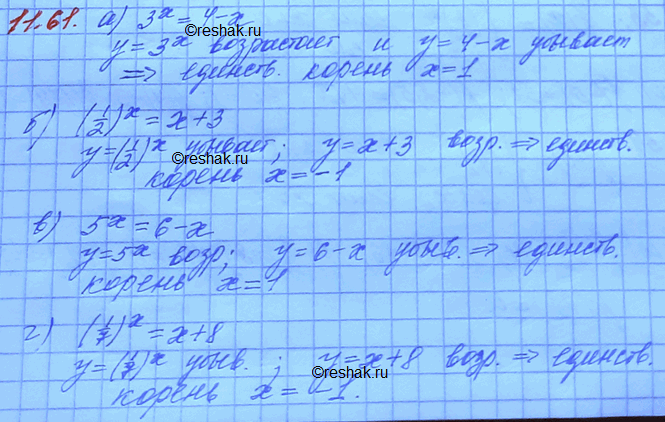 11.61. а) 3^x = 4-x
y = 3^x возрастает и y = 4-x убывает
©reshak.ru
⇒ единств. корень x = 1
б) (1/2)^x = x+3
©reshak.ru
y = (1/2)^x убывает; y = x+3 возр. ⇒ единств.
корень x = -1
©reshak.ru
в) 5^x = 6-x
y = 5^x возр; y = 6-x убыв. ⇒ единств.
корень x = 1
©reshak.ru
г) (1/7)^x = x+8
y = (1/7)^x убыв. ; y = x+8 возр. ⇒ единств.
©reshak.ru
корень x = -1.